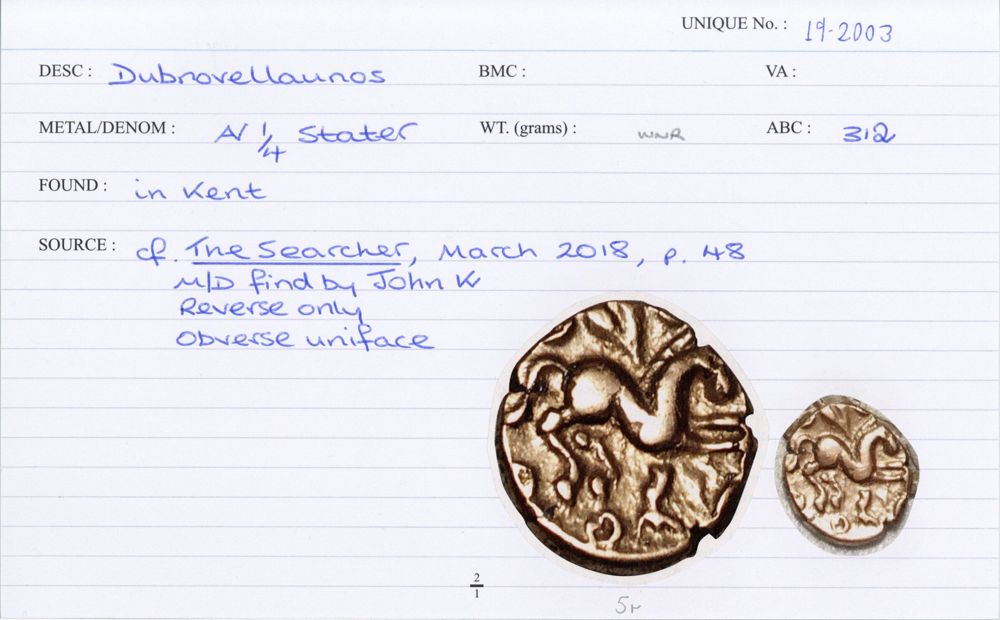 UNIQUE No. : 19-2003
DESC : Dubnovellaunos BMC : VA :
METAL/DENOM : AV 1/4 Stater WT. (grams) : WNR ABC : 312
FOUND : in Kent
SOURCE : cf. The Searcher, March 2018, p. 48
M/D find by John W
Reverse only
Obverse uniface
2/1